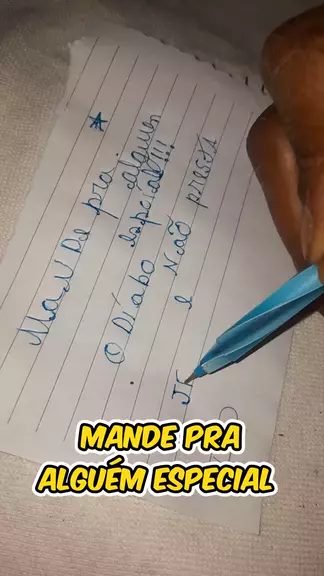 MaNDe pra.
alguen
especial!!!
O Diabo
e Não presta
MANDE PRA
ALGUÉM ESPECIAL